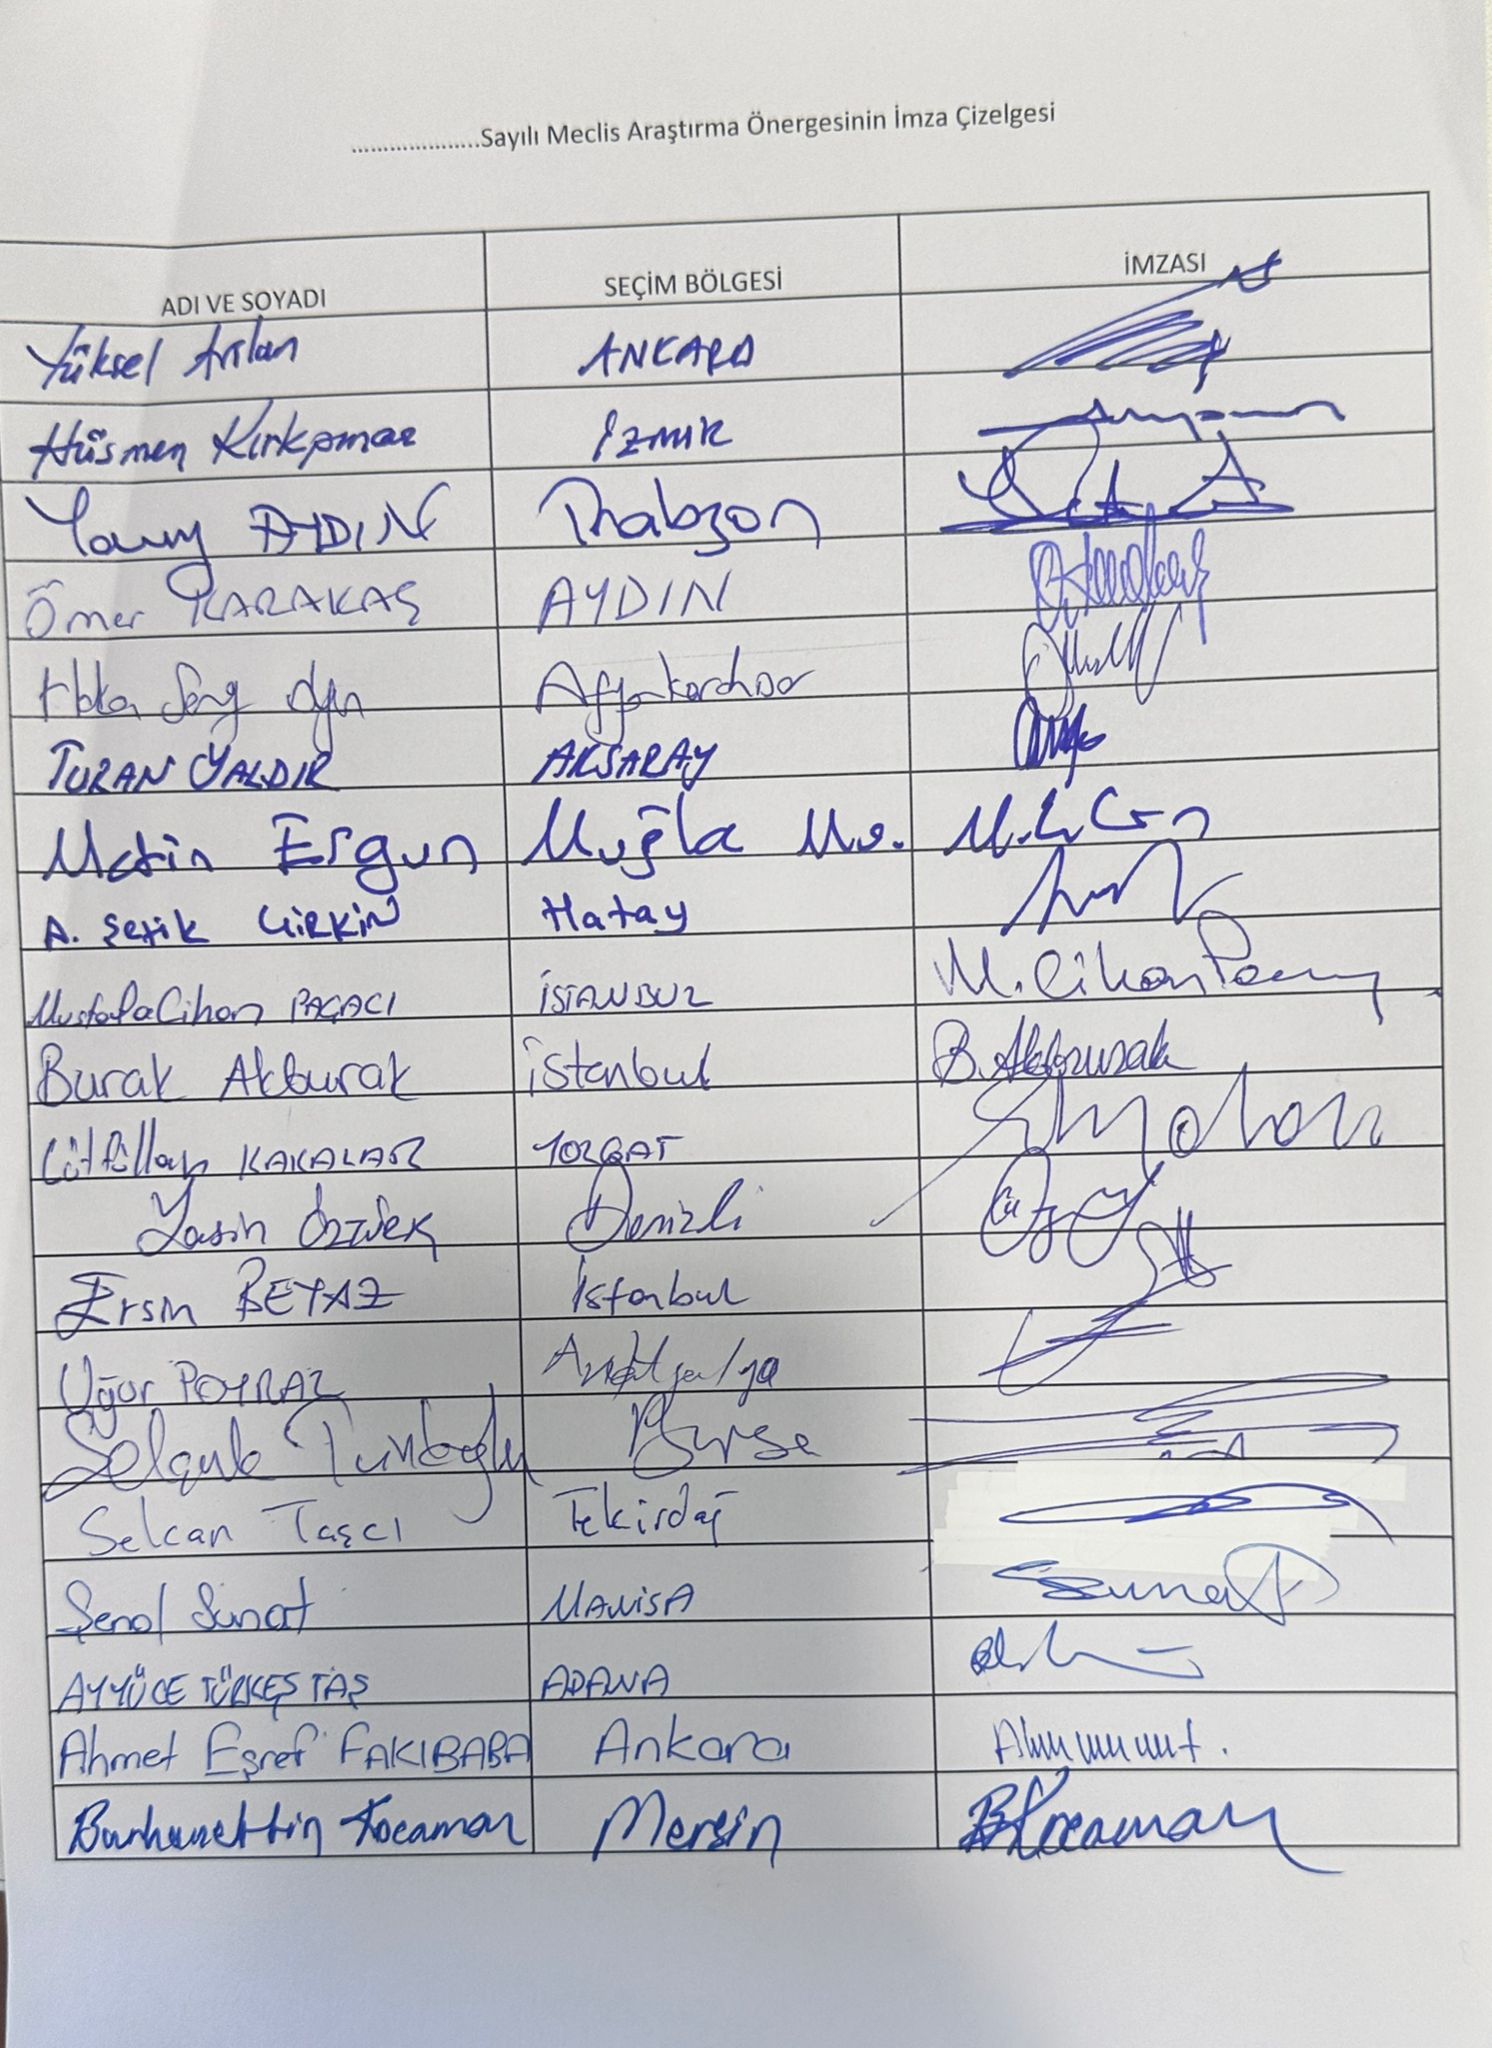 ....................Sayılı Meclis Araştırma Önergesinin İmza Çizelgesi
ADI VE SOYADI SEÇİM BÖLGESİ İMZASI
Yüksel Arslan ANKARA
Hüsmen Kırkpınar İZMİR
Yavuz AYDIN Trabzon
Ömer KARAKAŞ AYDIN
Afyonkarahisar
TURAN YALDIR AKSARAY
Metin Ergun Muğla
A. Şefik ÇİRKİN Hatay
Mustafa Cihan PAÇACI İSTANBUL M. Cihan
Burak Akburak İstanbul B. Akburak
Lütfullah KAKALAR YOZGAT
Yasin ÖZTÜRK Denizli
Ersin BEYAZ İstanbul
Uğur POYRAZ Antalya
Selçuk Türkoğlu Bursa
Selcan Taşcı Tekirdağ
Şenol Sunat MANİSA Ş Sunat
AYYÜCE TÜRKEŞ TAŞ ADANA
Ahmet Eşref FAKIBABA Ankara
Burhanettin Kocamaz Mersin B Kocamaz